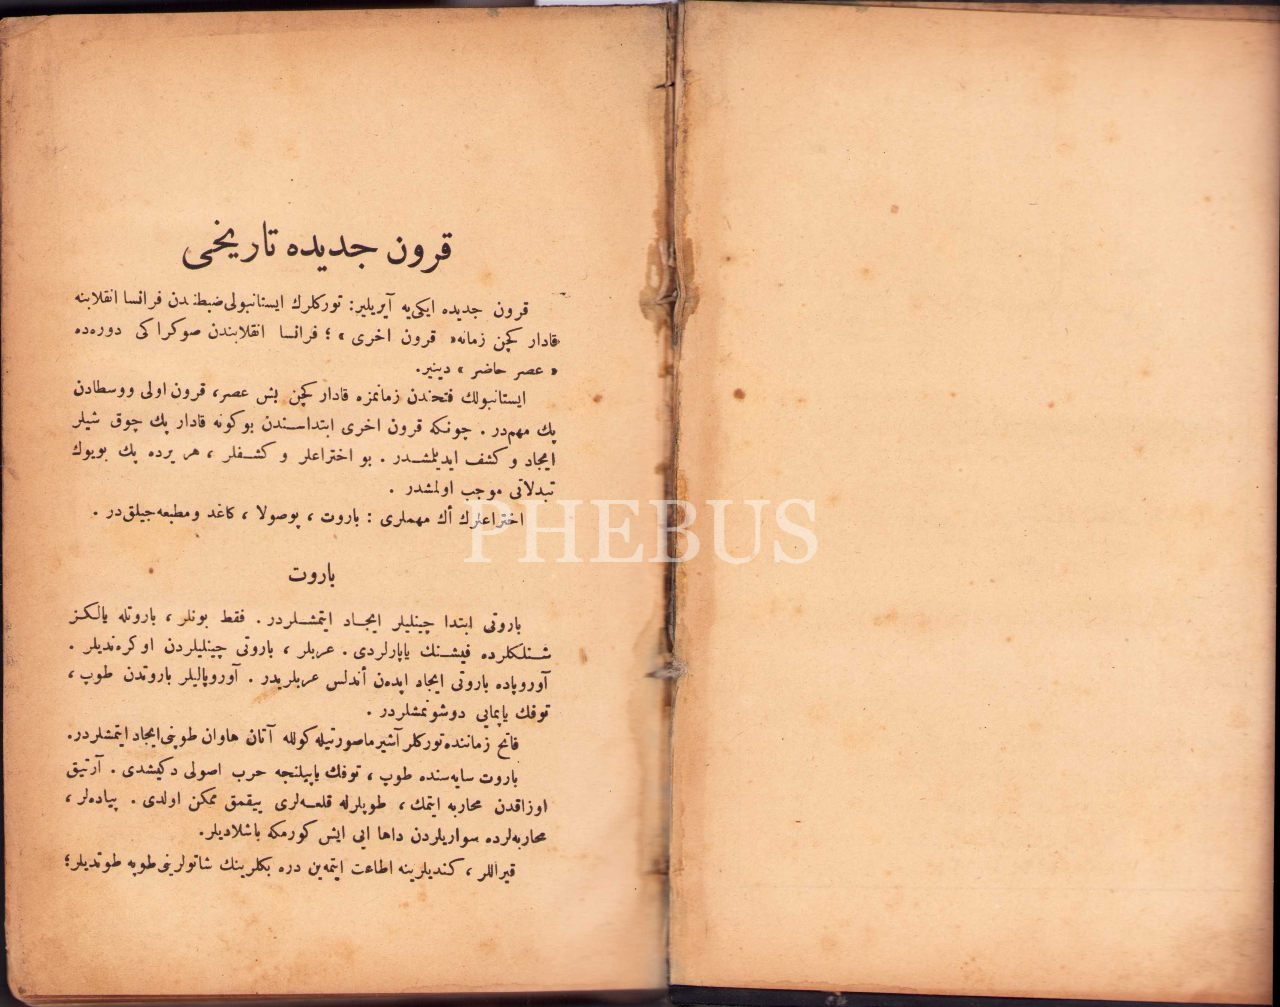 قرون جدیده تاریخی
قرون جدیده ایکی‌یه آیریلیر: تورکلرك ایستانبولی ضبطندن فرانسا انقلابنه
قادار کچن زمانه « قرون اخری » ؛ فرانسا انقلابندن صوکراکی دوره‌ده
« عصر حاضر » دینیر.
ایستانبولك فتحندن زمانمزه قادار کچن بش عصر، قرون اولی ووسطادن
پك مهم‌در . چونکه قرون اخری ابتداسندن بوکونه قادار پك چوق شیلر
ایجاد و کشف ایدیلمشدر . بو اختراعلر و کشفلر ، هر یرده پك بویوك
تبدلاتی موجب اولمشدر .
اختراعلرك أك مهملری : باروت ، پوصولا ، کاغد ومطبعه‌جیلق‌در .
PHEBUS
باروت
باروتی ابتدا چینلیلر ایجاد ایتمشلردر . فقط بونلر ، باروتله یالکز
شنلکلرده فیشنك یاپارلردی . عربلر ، باروتی چینلیلردن اوکره‌ندیلر .
آوروپاده باروتی ایجاد ایدەن أندلس عربلریدر . آوروپالیلر باروتدن طوپ ،
توفك یاپمایی دوشونمشلردر .
فاتح زماننده تورکلر آشیرماصورتیله کولله آتان هاوان طوپنی ایجاد ایتمشلردر.
باروت سایه‌سنده طوپ ، توفك یاپیلنجه حرب اصولی دکیشدی . آرتیق
اوزاقدن محاربه ایتمك ، طوپلرله قلعه‌لری ییقمق ممکن اولدی . پیاده‌لر ،
محاربه‌لرده سواریلردن داها ایی ایش کورمکه باشلادیلر.
قیراللر ، کندیلرینه اطاعت ایتمه‌ین دره بکلرینك شاتولرینی طوپه طوتدیلر؛